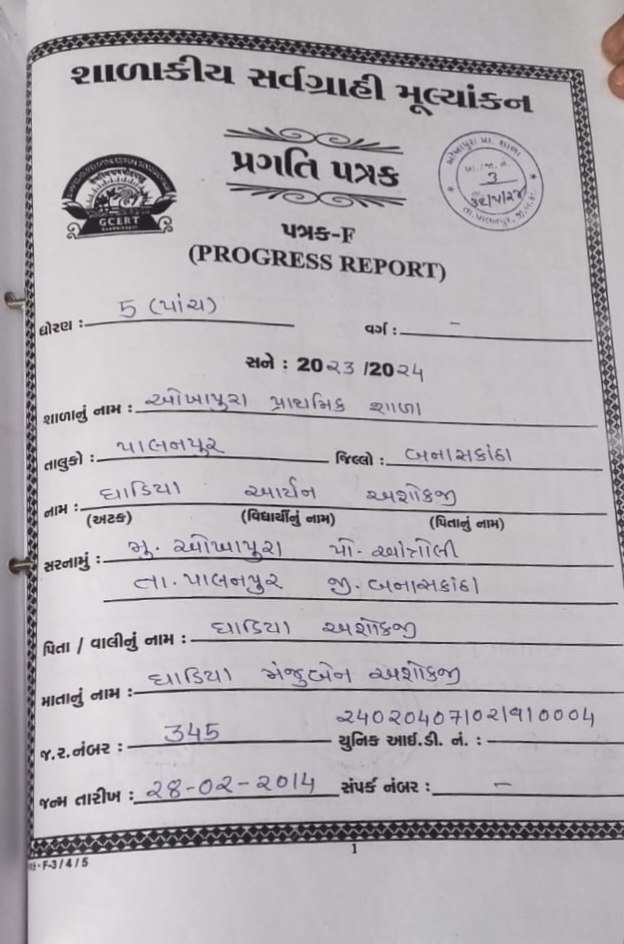 શાળાકીય સર્વગ્રાહી મૂલ્યાંકન
પ્રગતિ પત્રક
GCERT
પત્રક-F
(PROGRESS REPORT)
ધોરણ : 5 (પાંચ) વર્ગ : –
સને : 20૨૩ /20૨૪
શાળાનું નામ : ઓખાપુરા પ્રાથમિક શાળા
તાલુકો : પાલનપુર જિલ્લો : બનાસકાંઠા
નામ : ઘાડિયા આર્યન અશોકજી
(અટક) (વિદ્યાર્થીનું નામ) (પિતાનું નામ)
સરનામું : મુ. ઓખાપુરા પો. આંત્રોલી
તા. પાલનપુર જી. બનાસકાંઠા
પિતા / વાલીનું નામ : ઘાડિયા અશોકજી
માતાનું નામ : ઘાડિયા મંજુબેન અશોકજી
જ.ર.નંબર : 345 યુનિક આઈ.ડી. નં. :
જન્મ તારીખ : ૨8-0૨-૨014 સંપર્ક નંબર : –
1
F-3/4/5